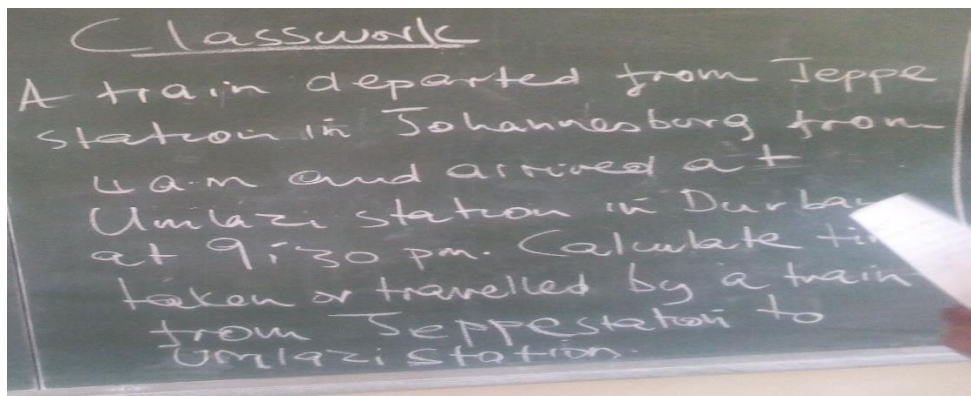 Classwork
A train departed from Jeppe
station in Johannesburg from
4 a.m and arrived at
Umlazi station in Durban
at 9:30 pm. Calculate
taken or travelled by a train
from Jeppestation to
Umlazi station.